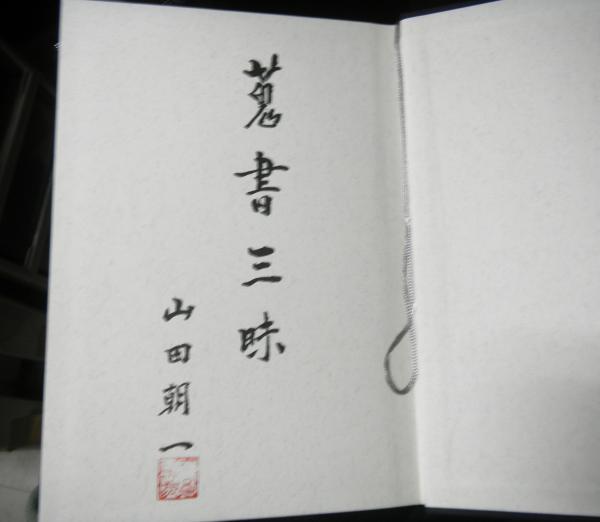 蒐書三昧
山田朝一